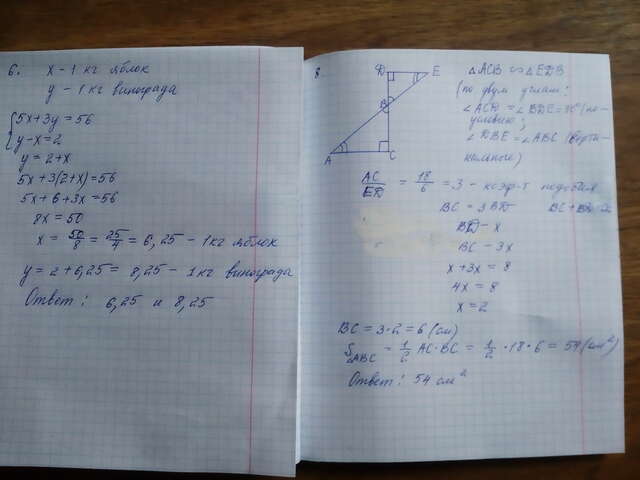 6. x – 1 кг яблок
y – 1 кг винограда
5x+3y=56
y-x=2
y=2+x
5x+3(2+x)=56
5x+6+3x=56
8x=50
x = 50/8 = 25/4 = 6,25 – 1кг яблок
y = 2+6,25 = 8,25 – 1кг винограда
Ответ: 6,25 и 8,25
8.
D E
B
A C
△ACB ∽ △EDB
(по двум углам:
∠ACB = ∠BDE = 90° (по
условию;
∠DBE = ∠ABC (верти-
кальные)
AC/ED = 18/6 = 3 – коэф-т подобия
BC = 3BD BC+BD
BD – x
BC – 3x
x+3x = 8
4x = 8
x = 2
BC = 3·2 = 6 (см)
S△ABC = 1/2 AC·BC = 1/2 ·18·6 = 54 (см²)
Ответ: 54 см²